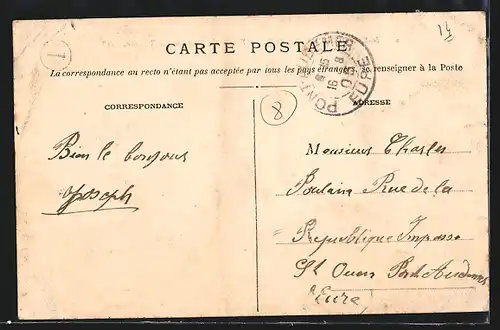 14
1
CARTE POSTALE
La correspondance au recto n'étant pas acceptée par tous les pays étrangers, se renseigner à la Poste
CORRESPONDANCE
8
ADRESSE
Bien le bonjour
Joseph
Monsieur Charles
Poulain Rue de la
République Impasse
St Ouen Pont Audemer
Eure